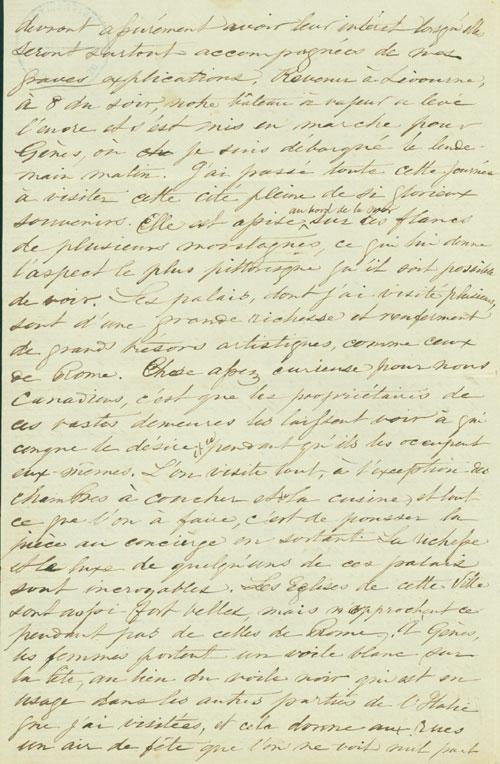 devront assurément avoir leur intéret lorsqu'elles
seront surtout accompagnées de mes
graves explications. Revenu à Livourne,
à 8 du soir, notre bateau à vapeur a levé
l'encre et s'est mis en marche pour
Gênes, où je suis débarqué le lende-
main matin. J'ai passé toute cette journée
à visiter cette cité pleine de si glorieux
souvenirs. Elle est assise au bord de la mer sur les flancs
de plusieurs montagnes, ce qui lui donne
l'aspect le plus pittoresque qu'il soit possible
de voir. Les palais, dont j'ai visité plusieurs,
sont d'une grande richesse et renferment
de grands tresors artistiques, comme ceux
de Rome. Chose assez curieuse pour nous
Canadiens, c'est que les propriétaires de
ces vastes demeures les laissent voir à qui-
conque le désire, et ce pendant qu'ils les occupent
eux-mêmes. L'on visite tout, à l'exception des
chambres à coucher et la cuisine, et tout
ce que l'on à faire, c'est de pousser la
pièce au concièrge en sortant. La richesse
et le luxe de quelqu'uns de ces palais
sont incroyables. Les Eglises de cette Ville
sont aussi fort belles, mais n'approchent ce
pendant pas de celles de Rome. A Gênes,
les femmes portent un voile blanc sur
la tête, au lieu du voile noir qui est en
usage dans les autres parties de l'Italie
que j'ai visitées, et cela donne aux rues
un air de fête que l'on ne voit nul part